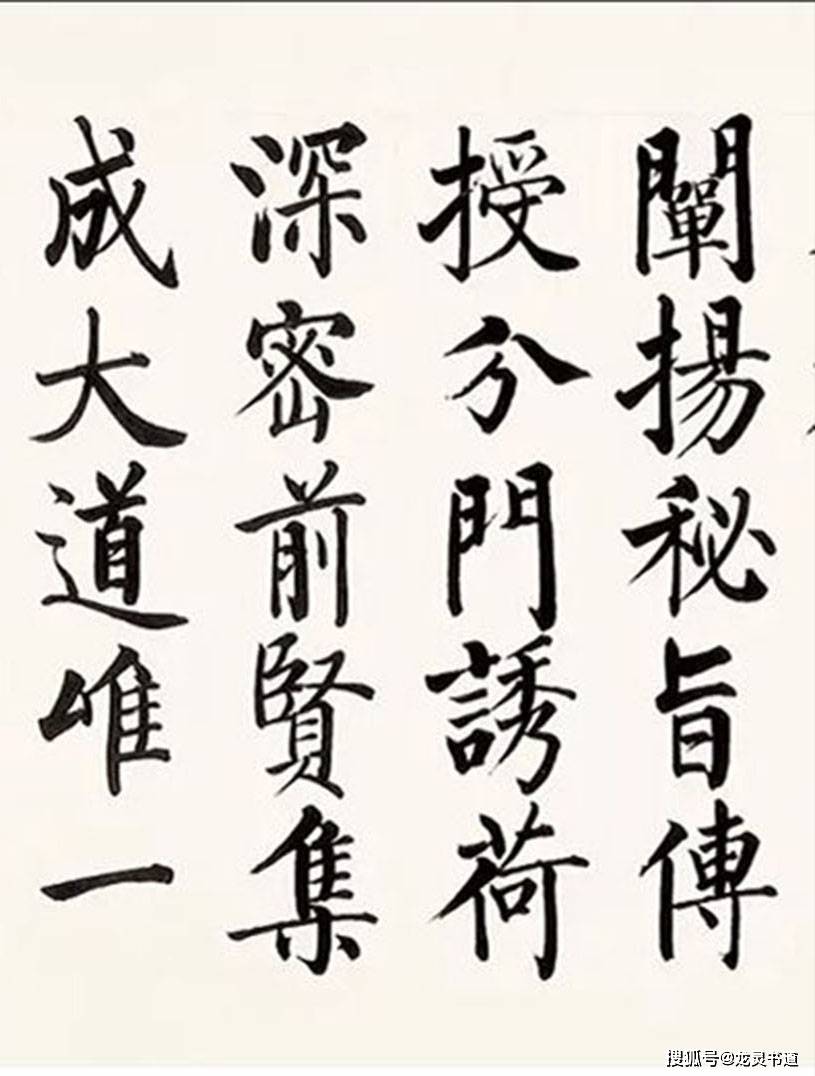 闡揚秘旨傳
授分門誘荷
深密前賢集
成大道唯一
搜狐号@龙灵书道